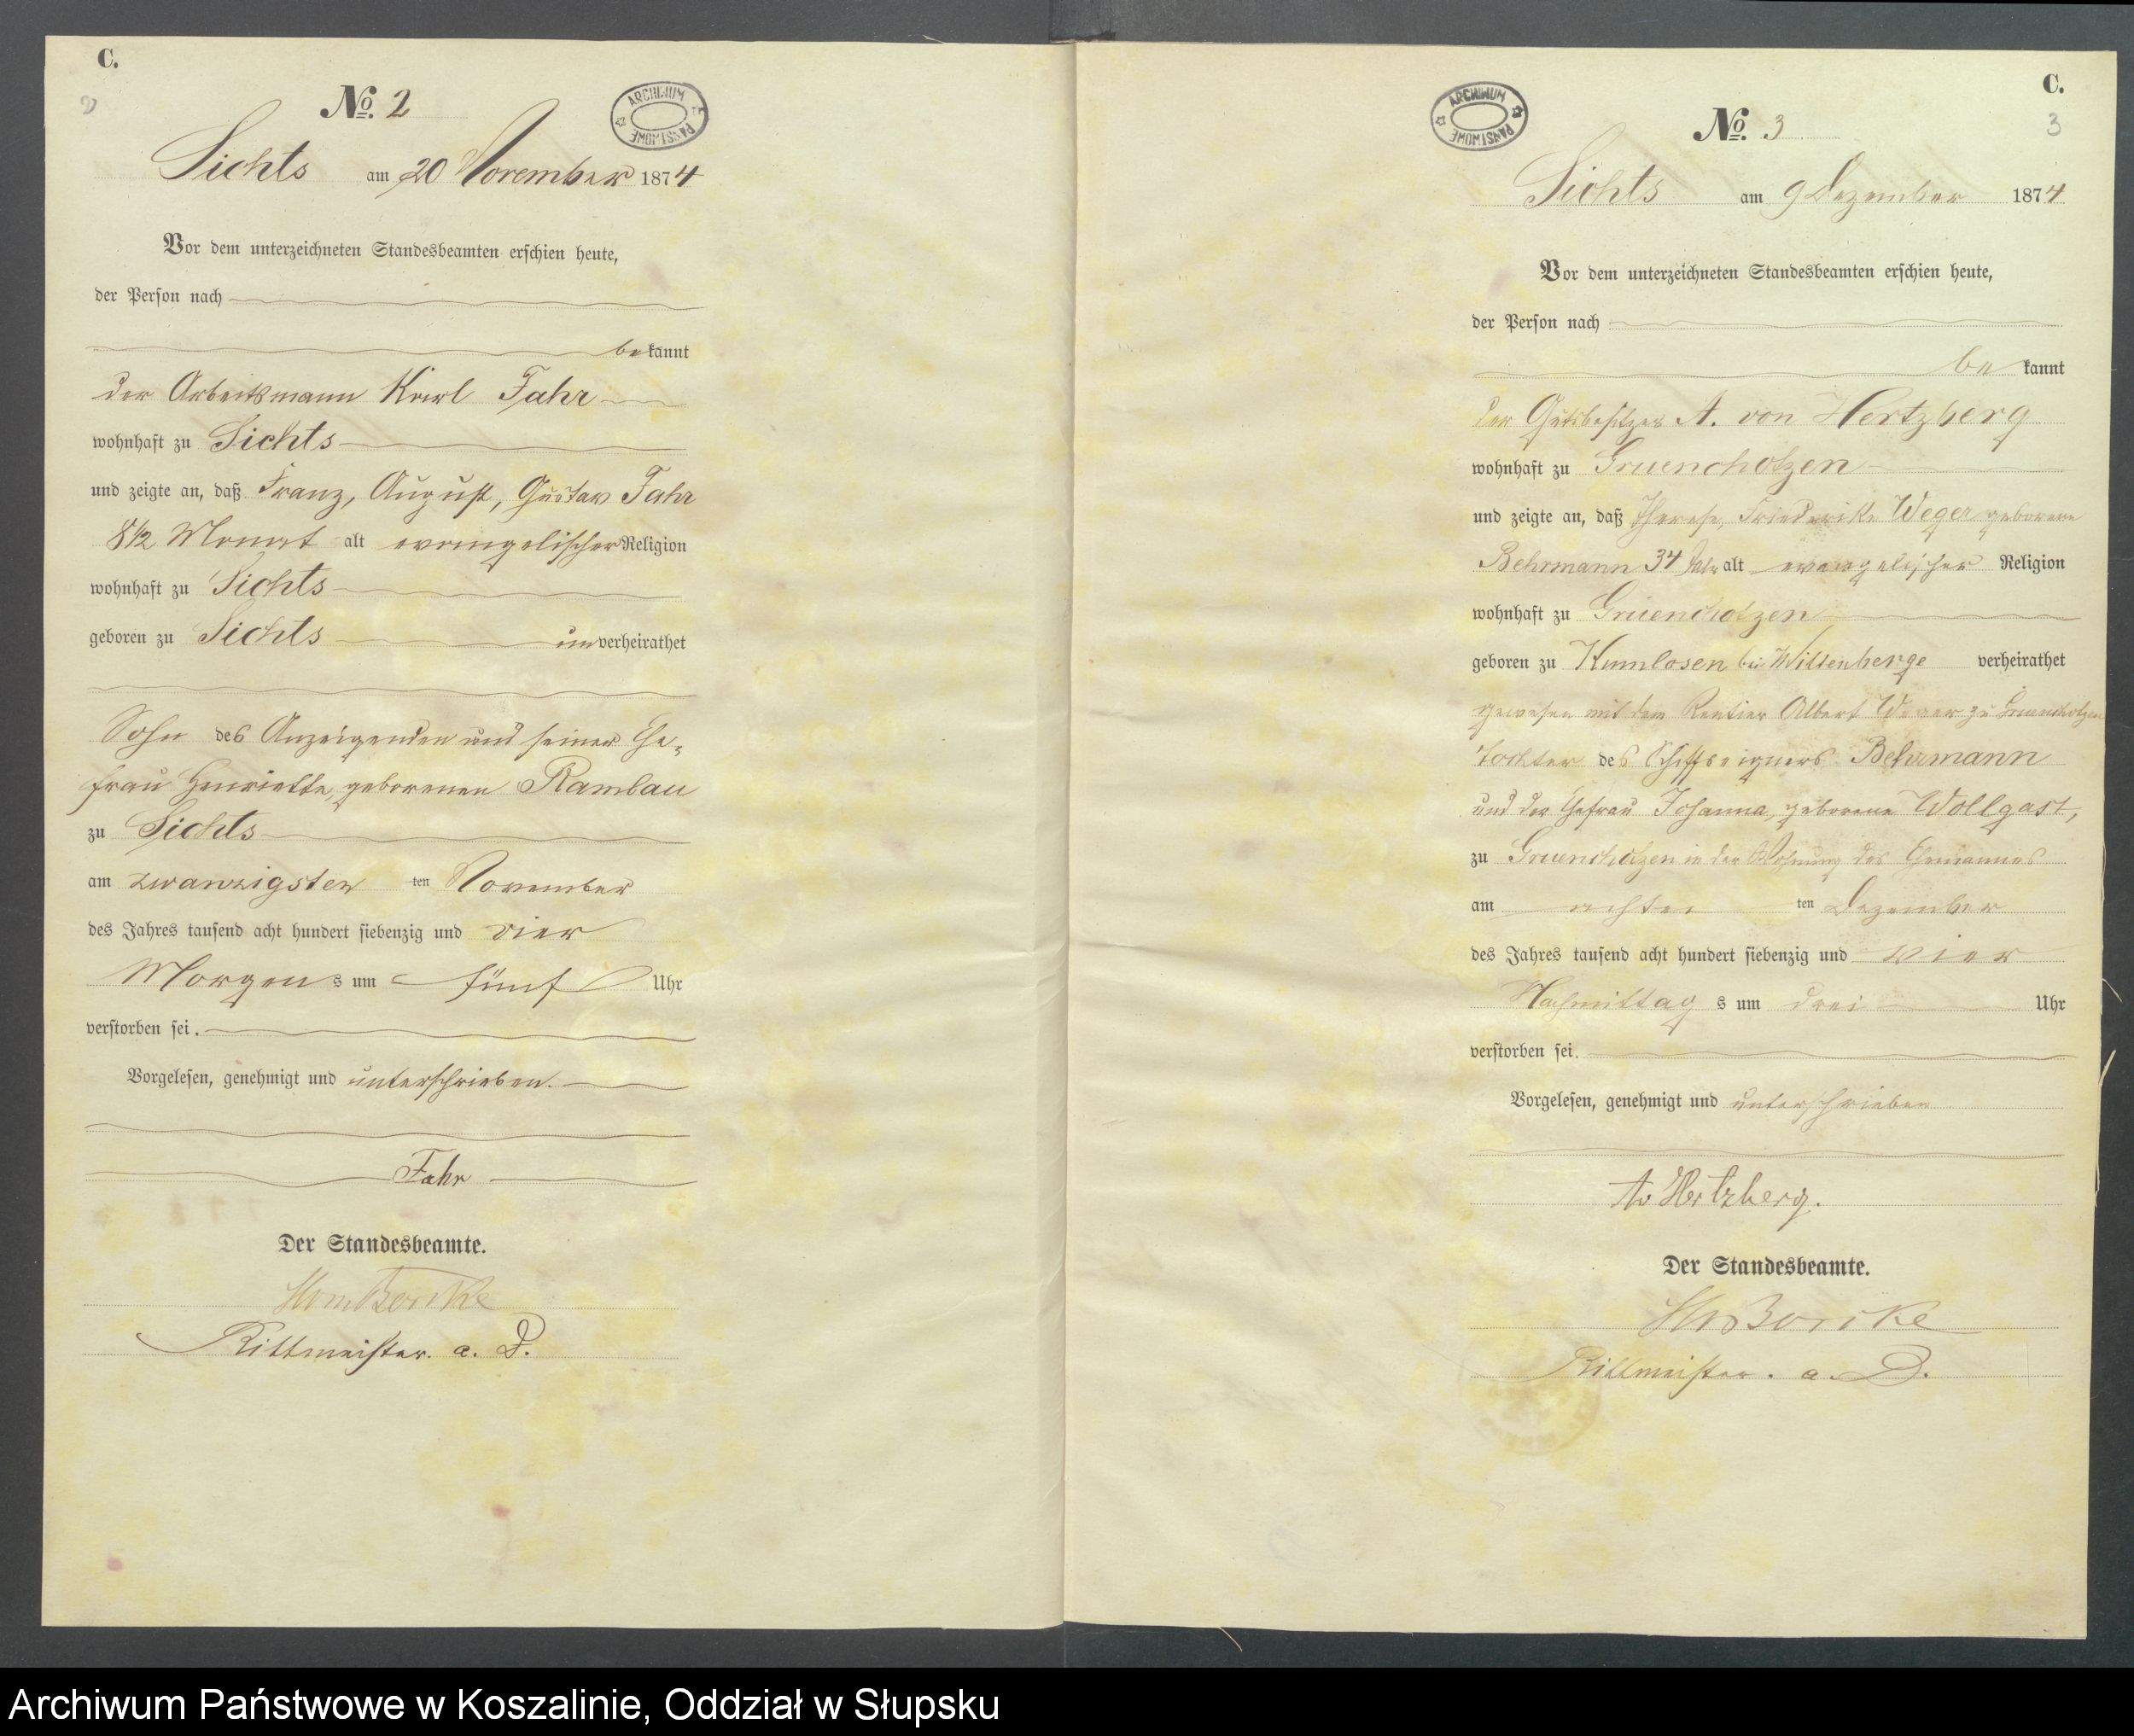 C.
2
No. 2
ARCHIWUM PAŃSTWOWE
Sichts am 20 November 1874
Vor dem unterzeichneten Standesbeamten erschien heute,
der Person nach
bekannt
der Arbeitsmann Karl Fahr
wohnhaft zu Sichts
und zeigte an, daß Franz, August, Gustav Fahr
8 1/2 Monat alt evangelischer Religion
wohnhaft zu Sichts
geboren zu Sichts unverheirathet
Sohn des Anzeigenden und seiner Ehe-
frau Henriette, geborenen Rambau
zu Sichts
am zwanzigsten ten November
des Jahres tausend acht hundert siebenzig und vier
Morgens um fünf Uhr
verstorben sei.
Vorgelesen, genehmigt und unterschrieben.
Fahr
Der Standesbeamte.
Rittmeister. a. D.
C.
3
No. 3
ARCHIWUM PAŃSTWOWE
Sichts am 9 Dezember 1874
Vor dem unterzeichneten Standesbeamten erschien heute,
der Person nach
bekannt
der Gutsbesitzer A. von Hertzberg
wohnhaft zu Gruenchotzen
und zeigte an, daß Therese, Friederike Weger geborene
Behrmann 34 Jahr alt evangelischer Religion
wohnhaft zu Gruenchotzen
geboren zu Kumlosen bei Wittenberge verheirathet
gewesen mit dem Rentier Albert Weger zu Gruenchotzen
Tochter des Schiffseigners Behrmann
und der Ehefrau Johanna, geborene Wollgast,
zu Gruenchotzen in der Wohnung des Ehemannes
am achten ten Dezember
des Jahres tausend acht hundert siebenzig und vier
Nachmittags um drei Uhr
verstorben sei.
Vorgelesen, genehmigt und unterschrieben
Av Hertzberg.
Der Standesbeamte.
Rittmeister. a. D.
Archiwum Państwowe w Koszalinie, Oddział w Słupsku